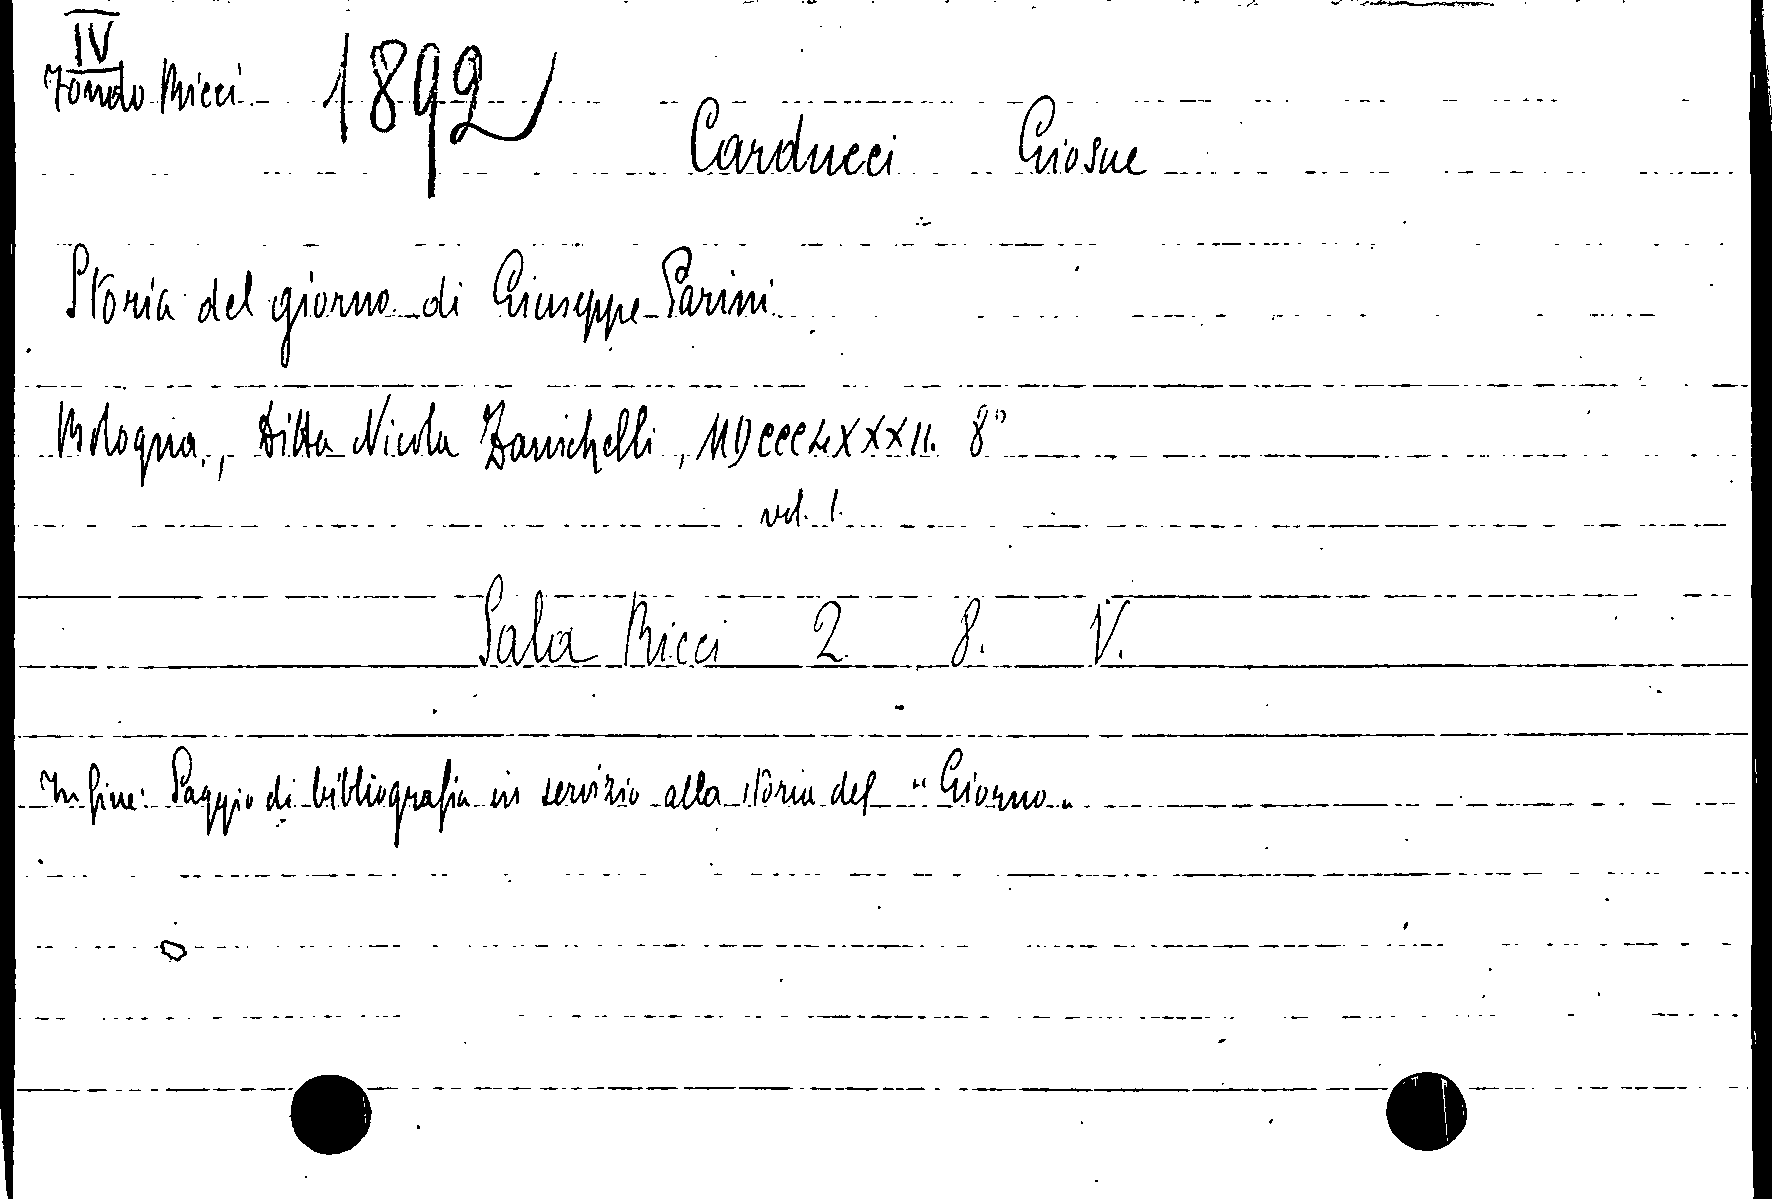 IV
Fondo Ricci 1892
Carducci Giosue
Storia del giorno di Giuseppe Parini
Bologna, Ditta Nicola Zanichelli, MDCCCLXXXII. 8°
vol. 1.
Sala Ricci 2 8. V.
In fine: Saggio di bibliografia in servizio alla storia del "Giorno"